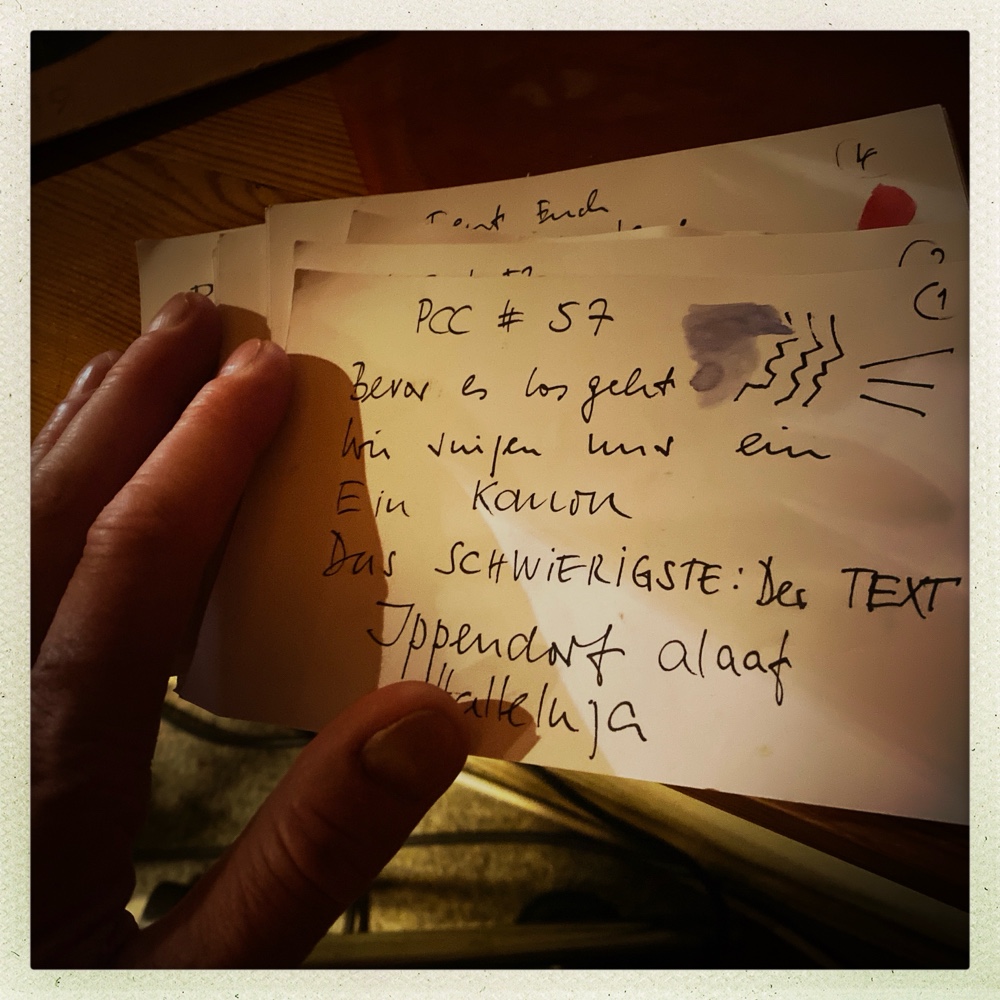 (4
Traut Euch
(1
PCC # 57
Bevor es los geht
Wir singen uns ein
Ein Kanon
Das SCHWiERiGSTE: Der TEXT
Ippendorf alaaf
Halleluja